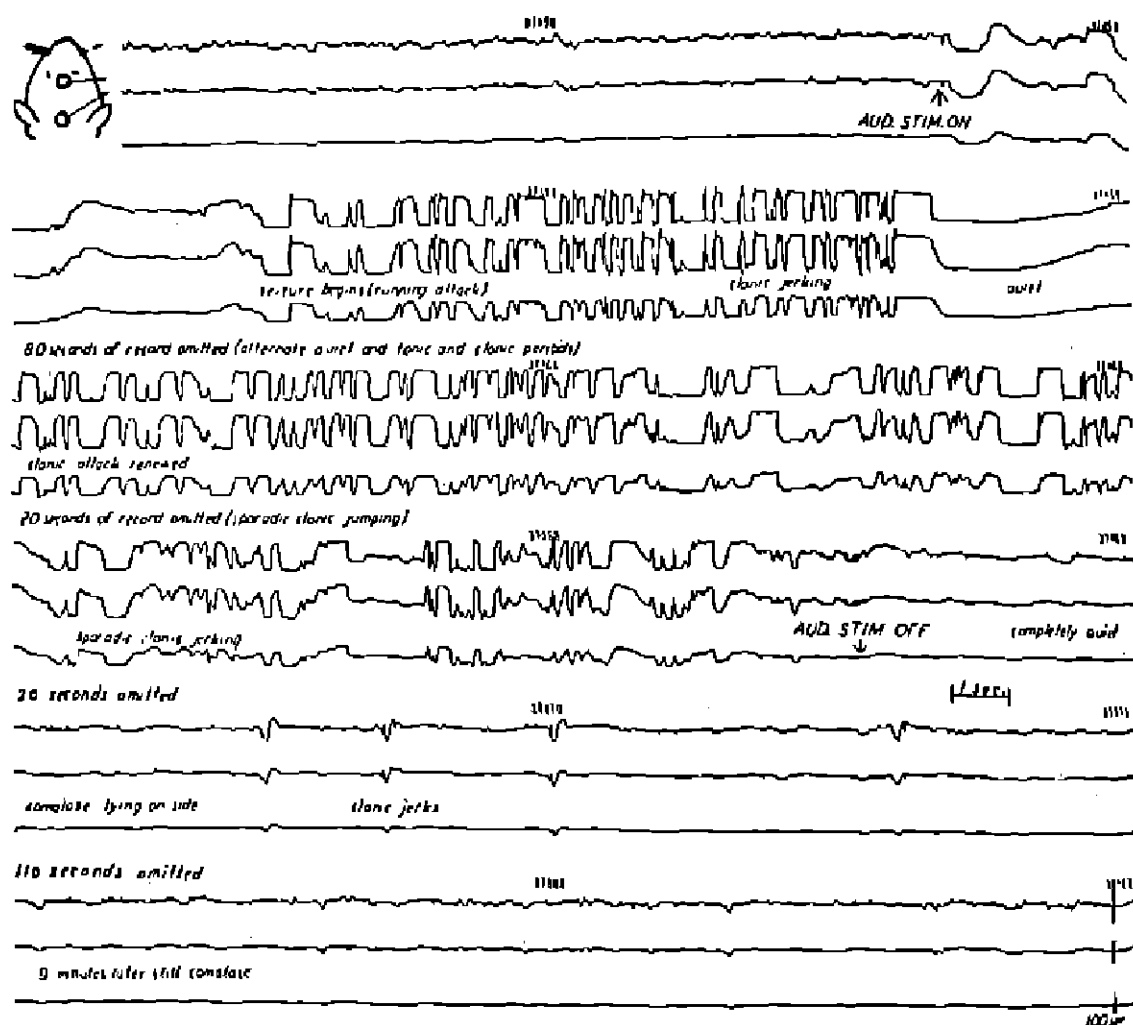 AUD. STIM. ON
seizure begins (running attack)
clonic jerking
quiet
80 seconds of record omitted (alternate quiet and tonic and clonic periods)
clonic attack renewed
20 seconds of record omitted (sporadic clonic jumping)
sporadic clonic jerking
AUD. STIM OFF
completely quiet
1 sec.
seconds omitted
comatose lying on side
clonic jerks
110 seconds omitted
9 minutes later still comatose